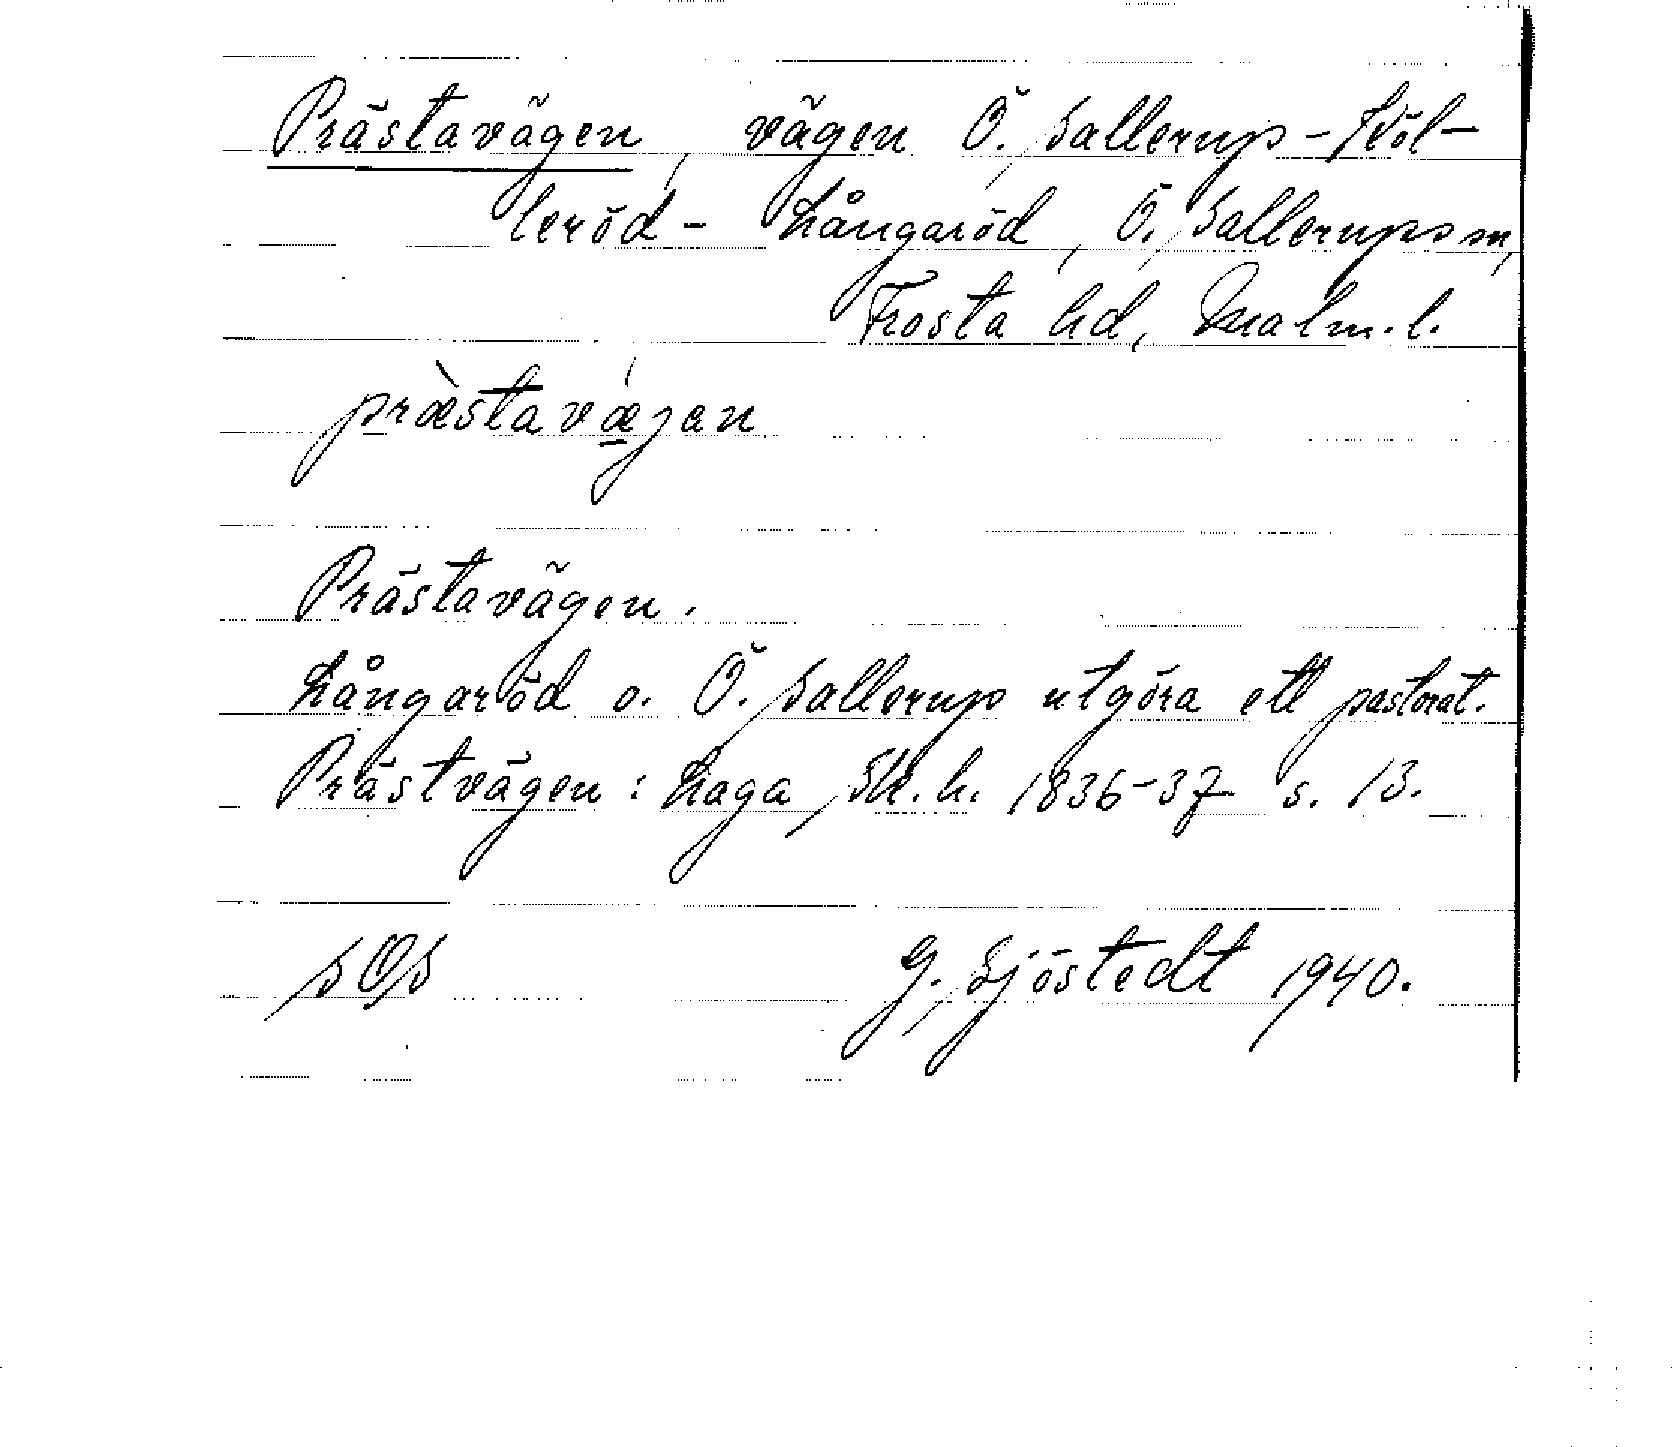 Prästavägen, vägen Ö. Sallerup - Köl-
leröd - Långaröd, Ö. Sallerups sn,
Frosta hd, Malm. l.
præ̀stavǽ̱jen
Prästavägen.
Långaröd o. Ö. Sallerup utgöra ett pastorat.
Prästvägen: Laga Sk. h. 1836-37 s. 13.
SOS
G. Sjöstedt 1940.